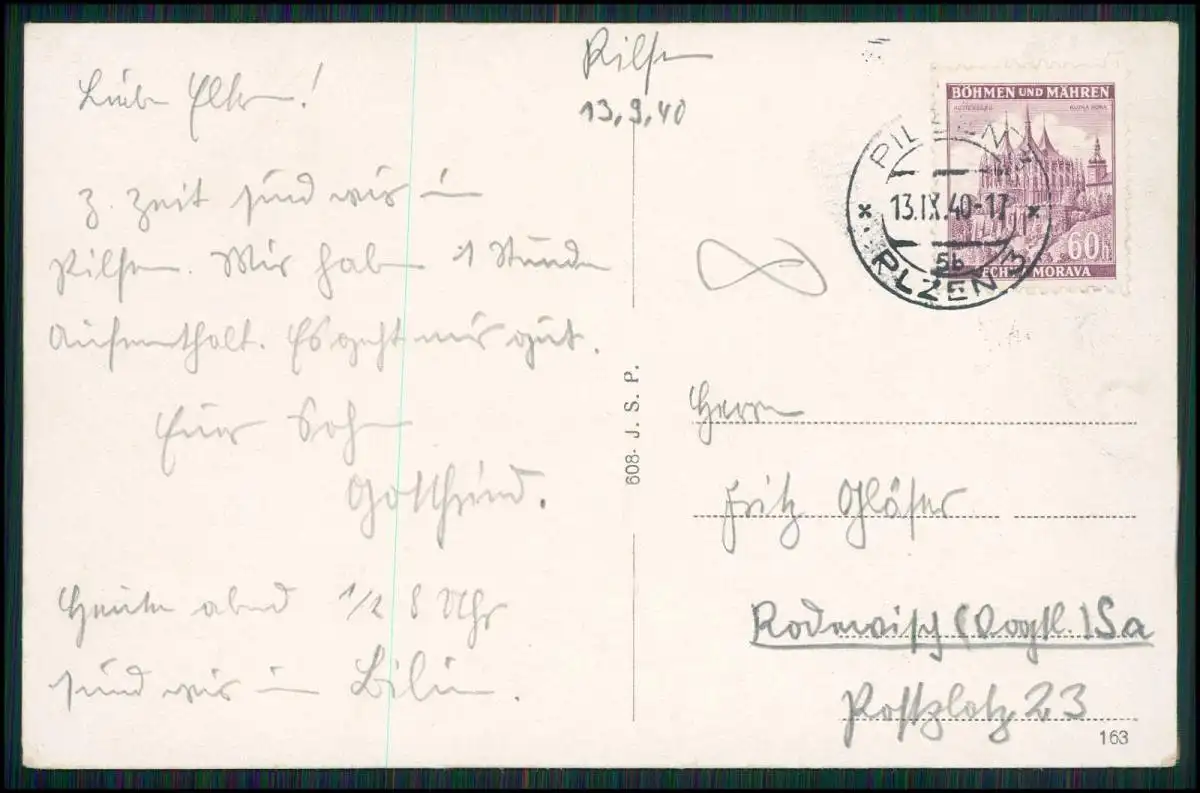 Pilsen
13.9.40
Liebe Eltern!
Z. Zeit sind wir in
Pilsen. Wir haben 1 Stunde
Aufenthalt. Es geht mir gut.
Euer Sohn
Gottfried.
Heute abend 1/2 8 Uhr
sind wir in Bilin.
608- J. S. P.
BÖHMEN UND MÄHREN
KUTTENBERG KUTNÁ HORA
60h
ČECHY A MORAVA
PILSEN 3
13.IX.40-17
5b
PLZEŇ 3
Herrn
Fritz Gläser
Rodewisch (Vogtl.) Sa
Postplatz 23
163